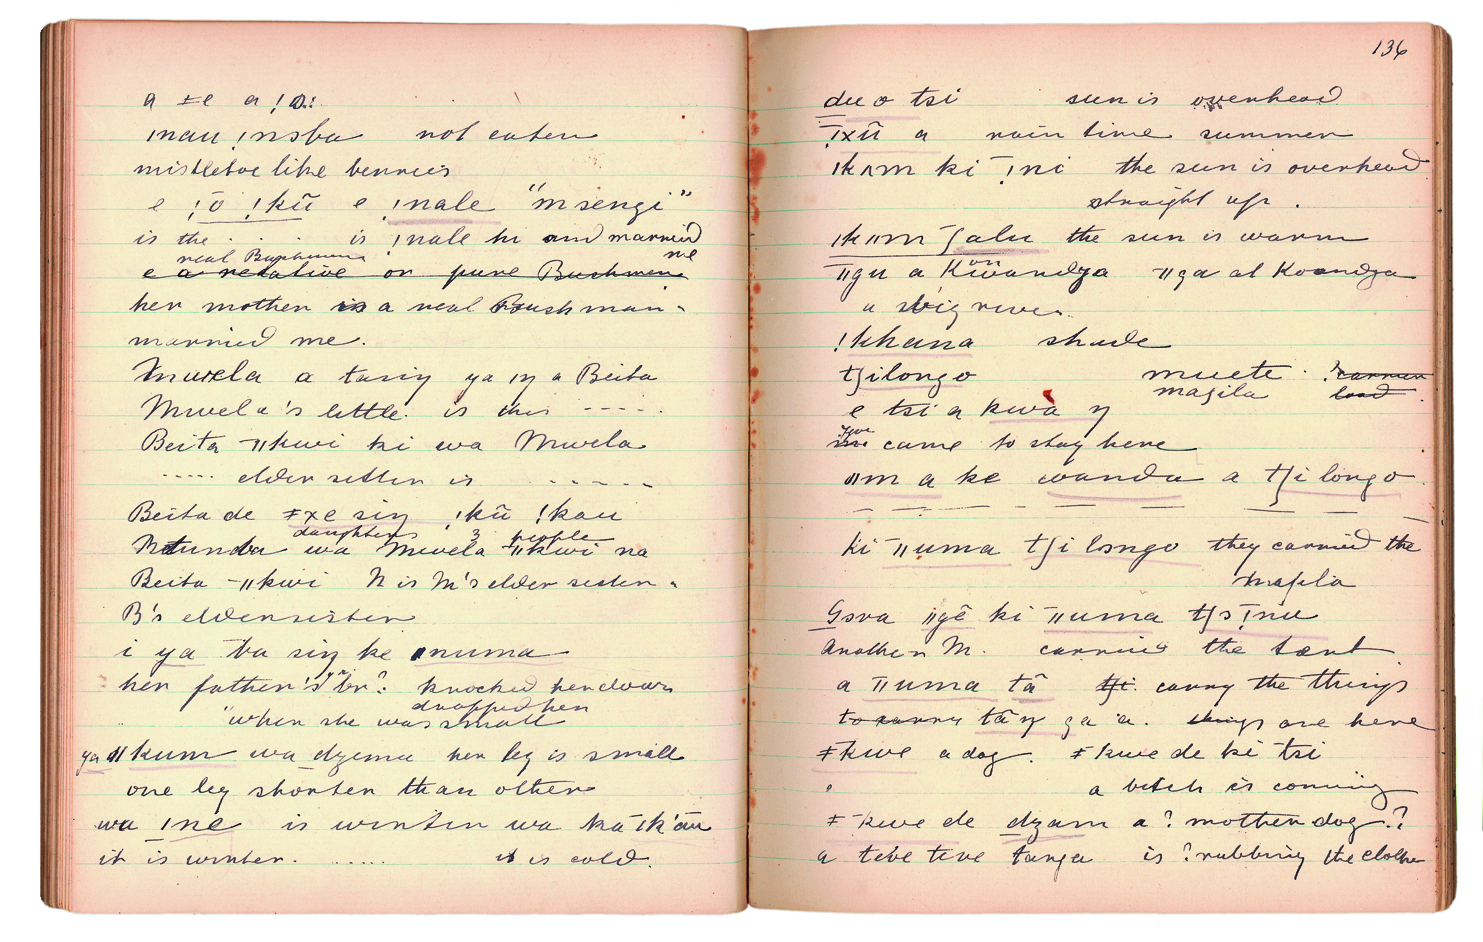 a ǂe a !o:
ınau !nsba not eaten
mistletoe like berries
e !ō !kũ e !nale "msengi"
is the . . . . is !nale hi and married me
real Bushmen
e a relative or pure Bushmen
her mother is a real Bushman -
married me.
Mwela a tasiŋ ya ıŋ a Beita
Mwela's little is this -----
Beita ǁkwi ki wa Mwela
----- elder sister is -----
Beita de ǂxe siŋ !kũ !kau
daughters 3 people
Btunda wa Mwela ǁkwi na
Beita ǁkwi N is M's elder sister.
B's elder sister
i ya ba siŋ ke numa
her father's br? knocked her down
dropped her
"when she was small
ya ǁkum wa dzema her leg is small
one leg shorter than other
wa ıne is winter wa ka ık'au
it is winter. ..... it is cold.
136
du o tsi sun is overhead
!xũ a rain time summer
ıkʌm ki !ni the sun is overhead
straight up.
ıkʌm ʃalu the sun is warm
ǁgu a Kwandga ǁga at Koandga
a big river.
!khana shade
tʃilongo muete . ? carrier
magila load
e tsi a kwa ŋ
you
came to stay here
ǁm a ke wanda a tʃilongo
ki ǁuma tʃilongo they carried the
mafila
Gova ǁgē ki ǁuma tʃs !nu
Another M. carries the tent
a ǁuma tā tʃi. carry the things
to carry tāŋ ga a. things are here
ǂkwe a dog. ǂkwe de ki tsi
a bitch is coming
ǂkwe de dzam a? mother dog.?
a teve teve tanga is ? rubbing the clothes